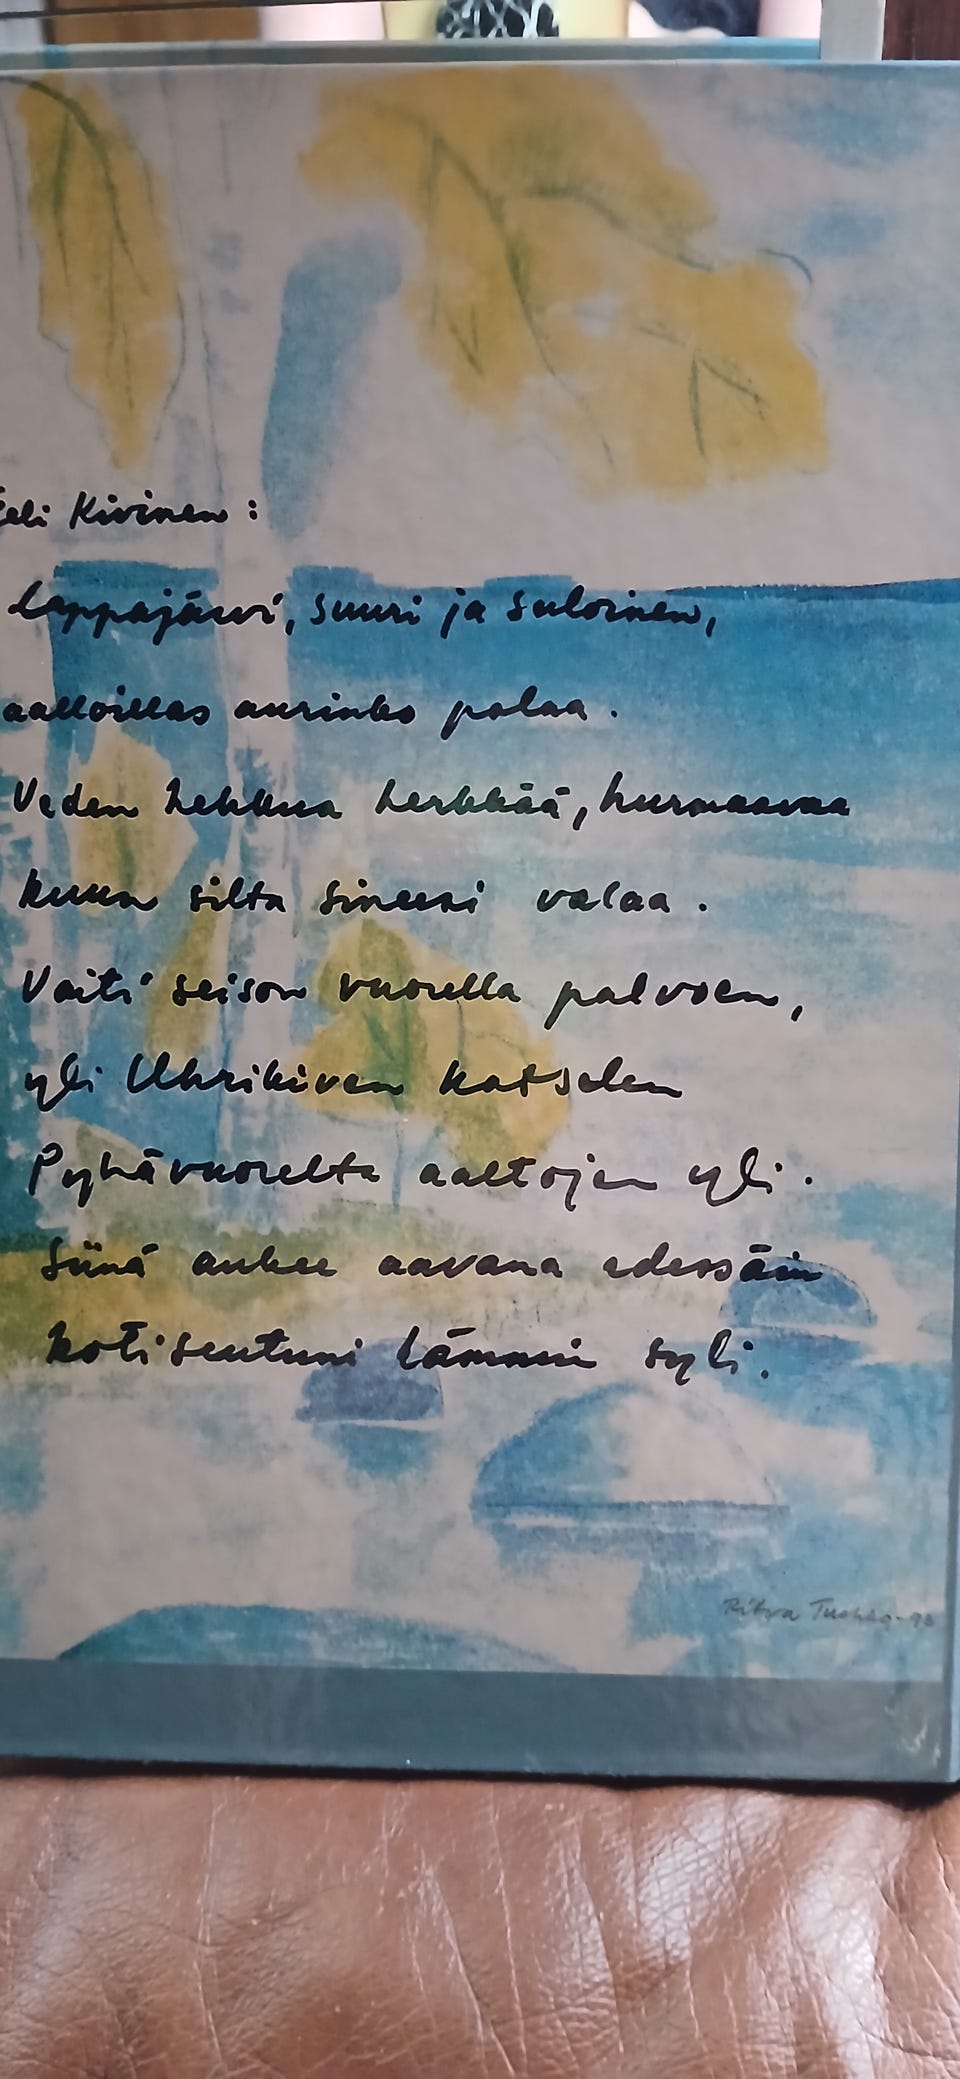 Kivinen:
Lappajärvi, suuri ja suloinen,
aalloillas aurinko palaa.
Veden hehkua herkkää, hurmaavaa
kuun silta sineesi valaa.
Vaiti seison vuorella palvoen,
yli Uhrikiven katselen
Pyhävuorelta aaltojen yli.
Siinä aukee aavana edessäin
kotiseutuni lämmin syli.
Ritva